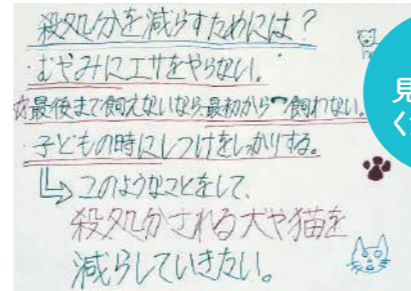 殺処分を減らすためには？
・むやみにエサをやらない。
☆最後まで飼えないなら、最初から飼わない。
・子どもの時にしつけをしっかりする。
↳このようなことをして、
殺処分される犬や猫を
減らしていきたい。
見
く